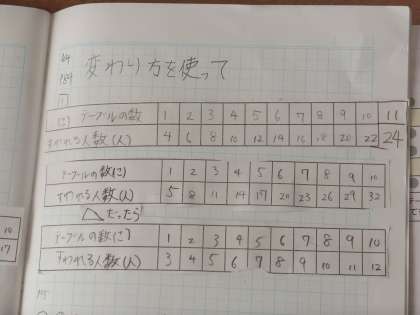 変わり方を使って
1
テーブルの数 1 2 3 4 5 6 7 8 9 10 11
すわれる人数(人) 4 6 8 10 12 14 16 18 20 22 24
テーブルの数(こ) 1 2 3 4 5 6 7 8 9 10
すわれる人数(人) 5 8 11 14 17 20 23 26 29 32
だったら
テーブルの数(こ) 1 2 3 4 5 6 7 8 9 10
すわれる人数(人) 3 4 5 6 7 8 9 10 11 12
10
17